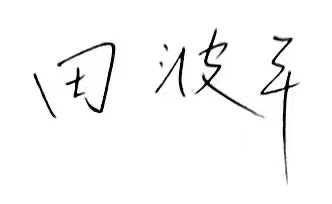 田波平